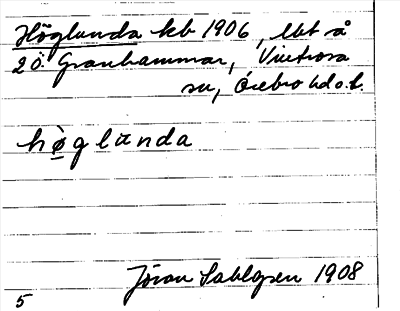 Höglunda kb 1906, lht å
2 Ö. Granhammar, Vintrosa
sn, Örebro hd o. l.
hø̀glūnda
Jöran Sahlgren 1908
5